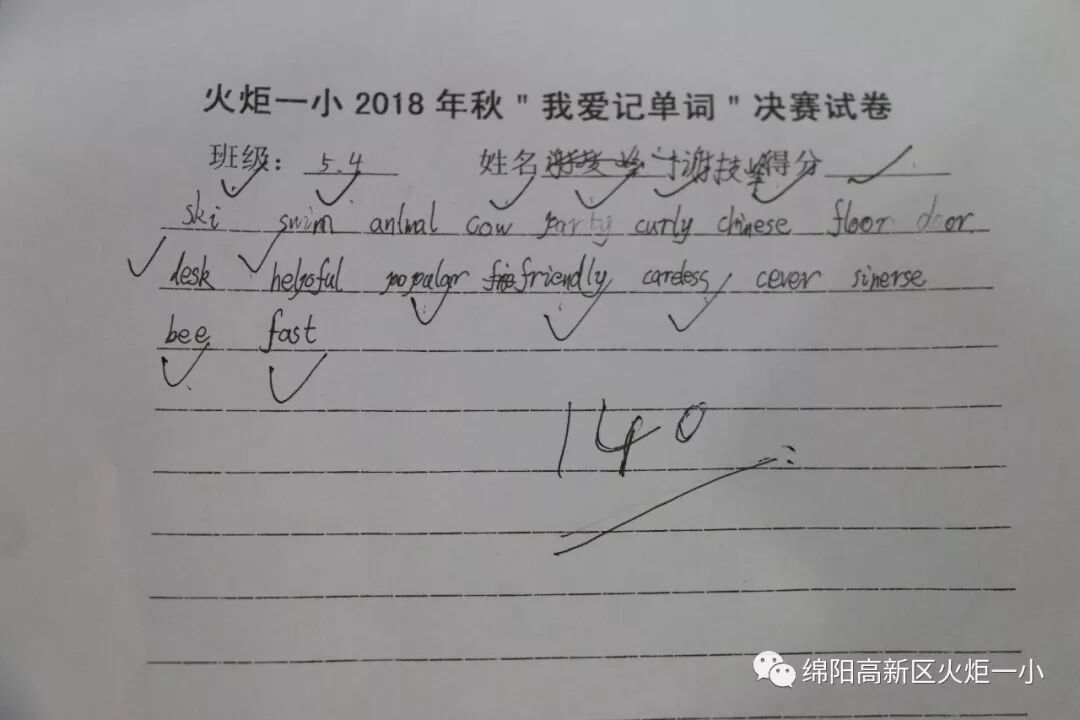 火炬一小 2018 年秋 " 我爱记单词 " 决赛试卷
班级： 5.4 姓名 谢技 得分
ski swim anlmal cow party curly chinese floor door
desk helpful popalgr friendly careless cever sinerse
bee fast
140
绵阳高新区火炬一小